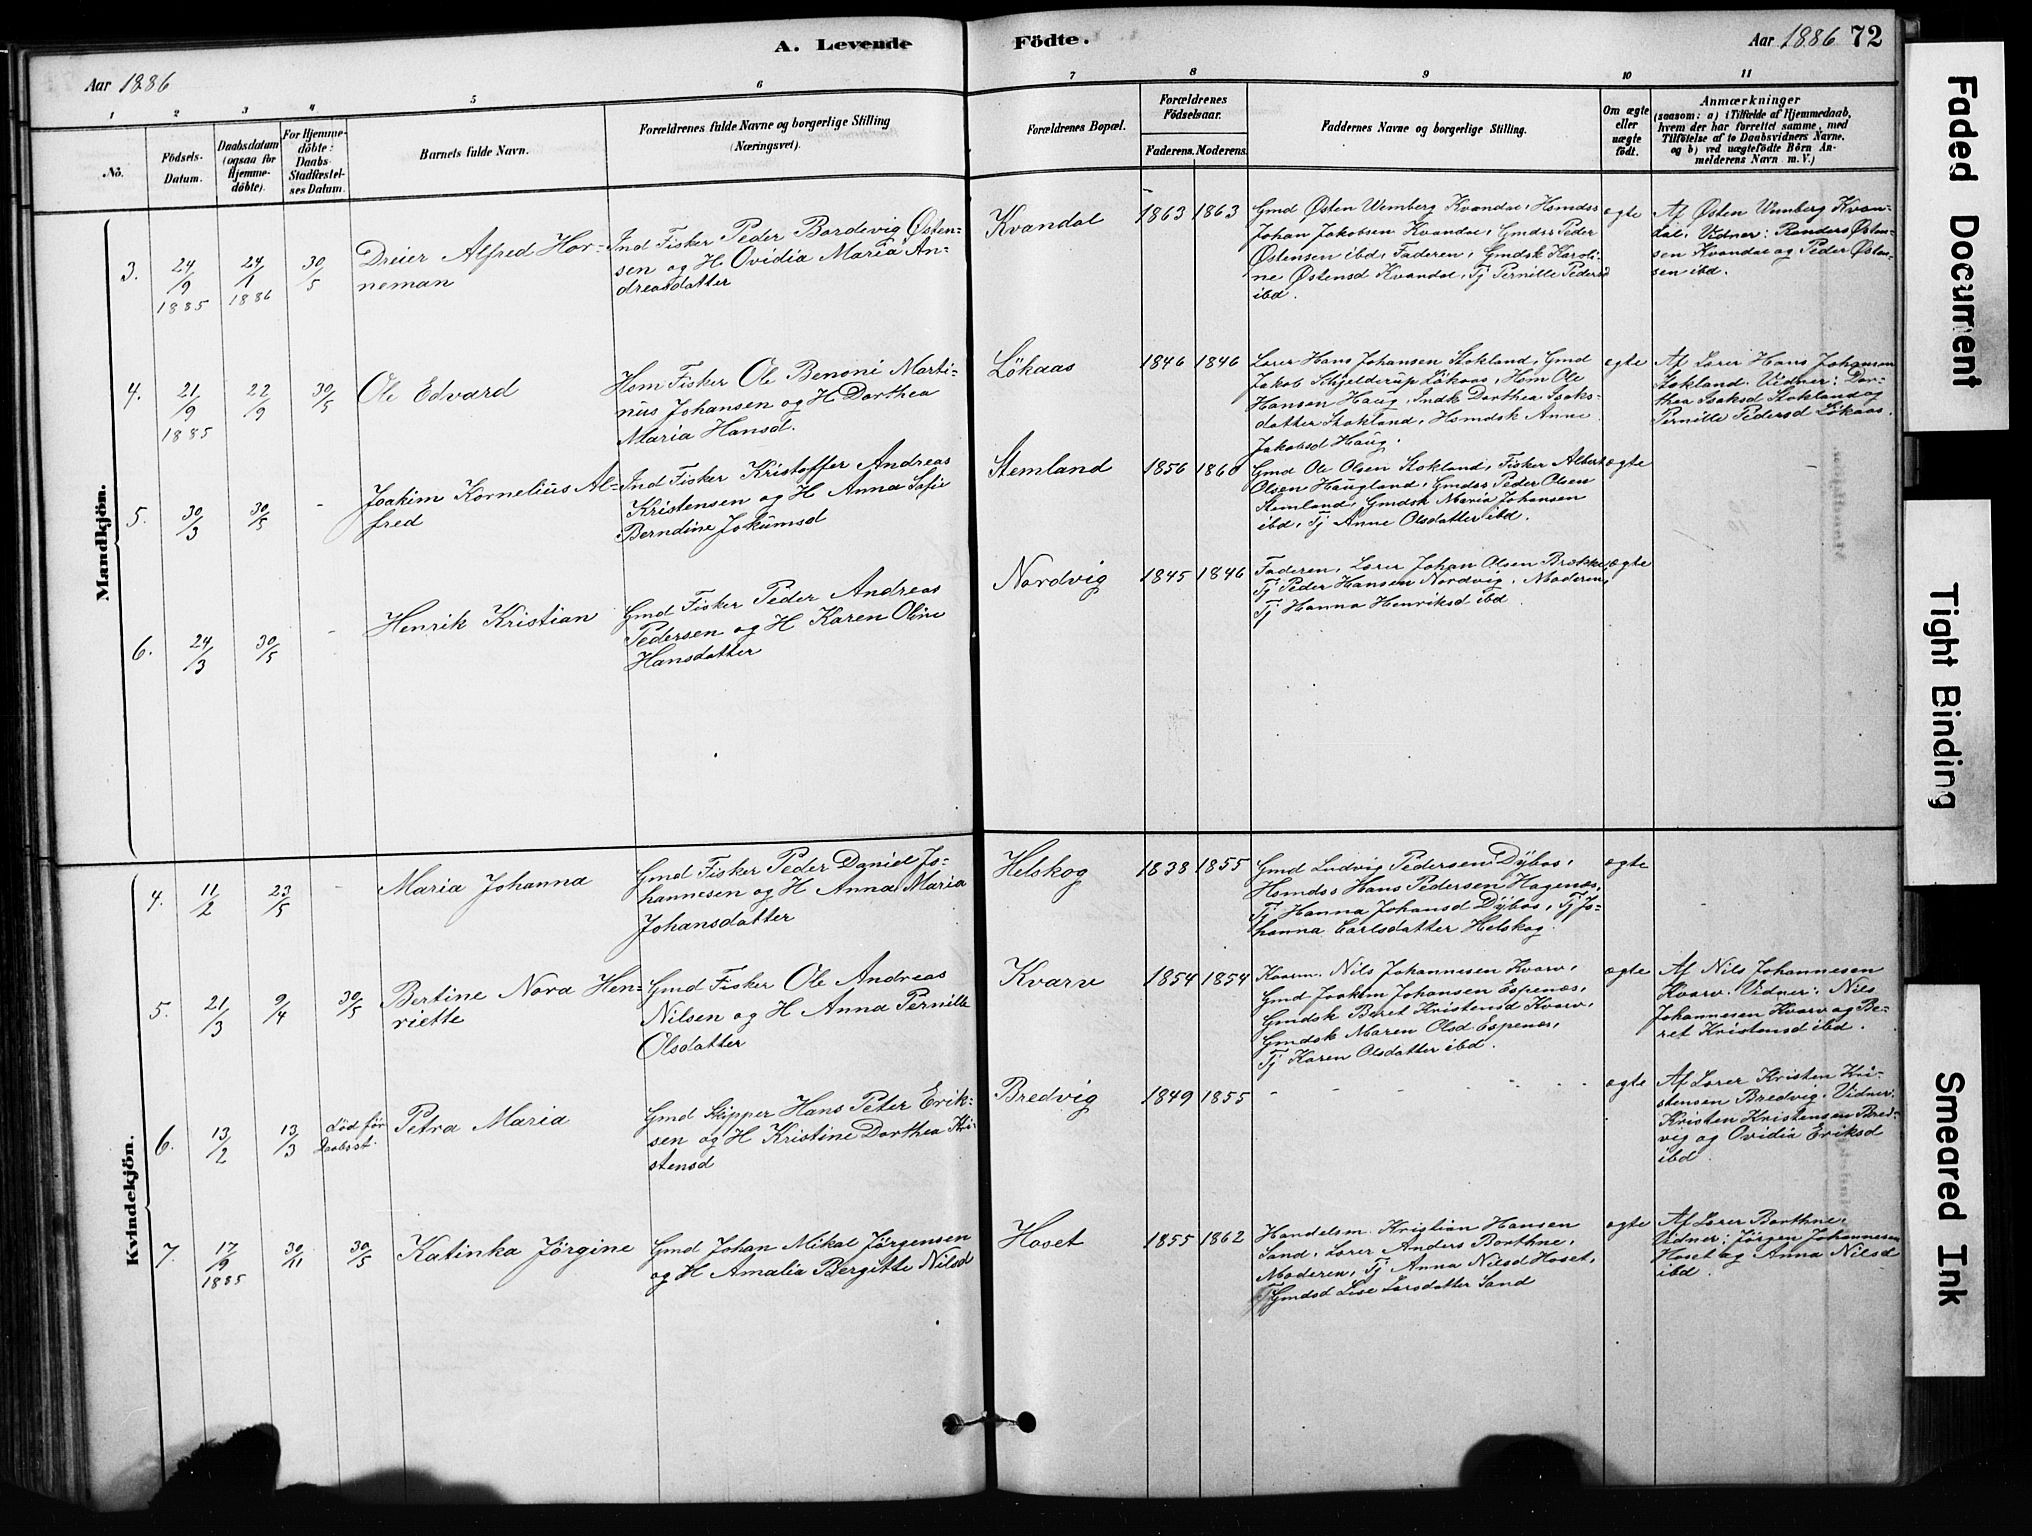 A. Levende
Födte.
Aar 1886
Aar 1886 72
1 2 3 4 5 6 7 8 9 10 11
Nö.
Födsels-
Datum.
Daabsdatum
(ogsaa for
Hjemme-
döbte).
For Hjemme-
döbte:
Daabs-
Stadfæstel-
ses Datum.
Barnets fulde Navn.
Forældrenes fulde Navne og borgerlige Stilling
(Næringsvei).
Forældrenes Bopæl.
Forældrenes
Födselsaar.
Faderens. Moderens.
Faddernes Navne og borgerlige Stilling.
Om ægte
eller
uægte
födt.
Anmærkninger
(saasom: a) i Tilfælde af Hjemmedaab,
hvem der har forrettet samme, med
Tilföielse af to Daabsvidners Navne.
og b) ved uægtefödte Börn An-
melderens Navn m. V.)
Mandkjön.
3. 24/9 1885 24/1 1886 30/5
Dreier Alfred Hor-
neman
Ind Fisker Peder Bordevig Østen-
sen og H Ovidia Maria An-
dreasdatter
Kvandal 1863 1863
Gmd Østen Wemberg Kvandal, Hsmdss
Johan Jakobsen Kvandal, Gmdss Peder
Østensen ibd, Faderen, Gmdsk Karoli-
ne Østensd Kvandal, Tj Pernille Pedersd
ibd.
ægte
Af Østen Wemberg Kvan-
dal, Vidner: Randers Østen-
sen Kvandal og Peder Østen-
sen ibd.
4. 21/9 1885 22/9 30/5
Ole Edvard
Hsm Fisker Ole Benoni Marti-
nus Johansen og H Dorthea
Maria Hansd.
Lökaas 1846 1846
Lærer Hans Johansen Stokland, Gmd
Jakob Schjelderup Lökaas, Hsm Ole
Hanson Haug, Indk Dorthea Isaks-
datter Stokland, Hsmdsk Anne
Jakobsd Haug.
ægte
Af Lærer Hans Johansen
Stokland. Vidner: Dor-
thea Isaksd Stokland og
Pernille Pedersd Lökaas.
5. 30/3 30/5 -
Joakim Kornelius Al-
fred
Ind Fisker Kristoffer Andreas
Kristensen og H Anna Sofie
Berndine Jokumsd
Stemland 1856 1860
Gmd Ole Olsen Stokland, Fisker Albert
Olsen Haugland, Gmdss Peder Olsen
Stemland, Gmdsk Maria Johansen
ibd, Tj Anne Olsdatter ibd.
ægte
6. 24/3 30/5 -
Henrik Kristian
Gmd Fisker Peder Andreas
Pedersen og H Karen Oline
Hansdatter
Nordvig 1845 1846
Faderen, Lærer Johan Olsen Brække,
Tj Peder Hansen Nordvig, Moderen,
Tj Hanna Henriksd ibd.
ægte
Kvindekjön.
4. 11/2 23/5 -
Maria Johanna
Gmd Fisker Peder Daniel Jo-
hannesen og H Anna Maria
Johansdatter
Helskog 1838 1855
Gmd Ludvig Pedersen Dybos,
Hsmdss Hans Pedersen Hagenæs,
Tj Hanna Johansd Dybos, Tj Jo-
hanna Carlsdatter Helskog.
ægte
5. 21/3 9/4 30/5
Bertine Nora Hen-
riette
Gmd Fisker Ole Andreas
Nilsen og H Anna Pernille
Olsdatter
Kvarv 1854 1854
Kaarm. Nils Johannesen Kvarv,
Gmd Joakim Johansen Espenæs,
Gmdsk Beret Kristensd Kvarv,
Gmdsk Maren Olsd Espenæs,
Tj Karen Olsdatter ibd.
ægte
Af Nils Johannesen
Kvarv. Vidner: Nils
Johannesen Kvarv og Be-
ret Kristensd ibd.
6. 13/2 13/3 död för
Daabsst.
Petra Maria
Gmd Skipper Hans Peter Erik-
sen og H Kristine Dorthea Kri-
stensd
Bredvig 1849 1855 - - - - -
ægte
Af Lærer Kristen Kri-
stensen Bredvig. Vidner:
Kristen Kristensen Bred-
vig og Ovidia Eriksd
ibd.
7. 17/9 1885 30/11 30/5
Katinka Jörgine
Gmd Johan Mikal Jörgensen
og H Amalia Bergitte Nilsd
Hoset 1855 1862
Handelsm. Kristian Hansen
Sand, Lærer Anders Borthne,
Moderen, Tj Anna Nilsd Hoset,
Gmdsd Lise Larsdatter Sand
ægte
Af Lærer Borthne.
Vidner: Jörgen Johannesen
Hoset og Anna Nilsd
ibd.
Faded Document
Tight Binding
Smeared Ink